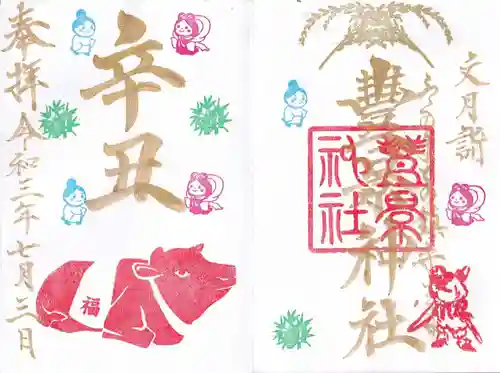 文月詣
豊景神社
豊景神社
辛丑
福
奉拝 令和三年七月三日